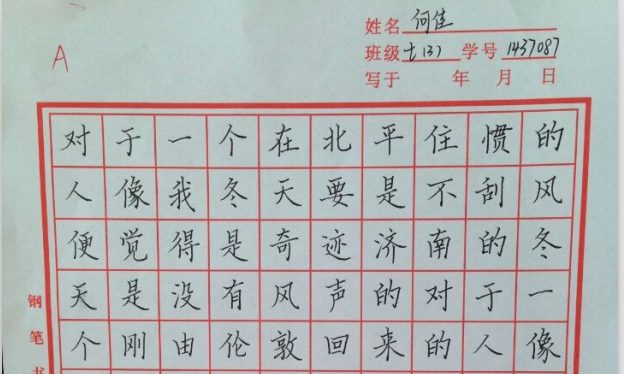 姓名 何佳
A
班级 七(3) 学号 1437087
写于 年 月 日
对于一个在北平住惯的
人像我冬天要是不刮风
便觉得是奇迹济南的冬
天是没有风声的对于一
个刚由伦敦回来的人像
钢笔